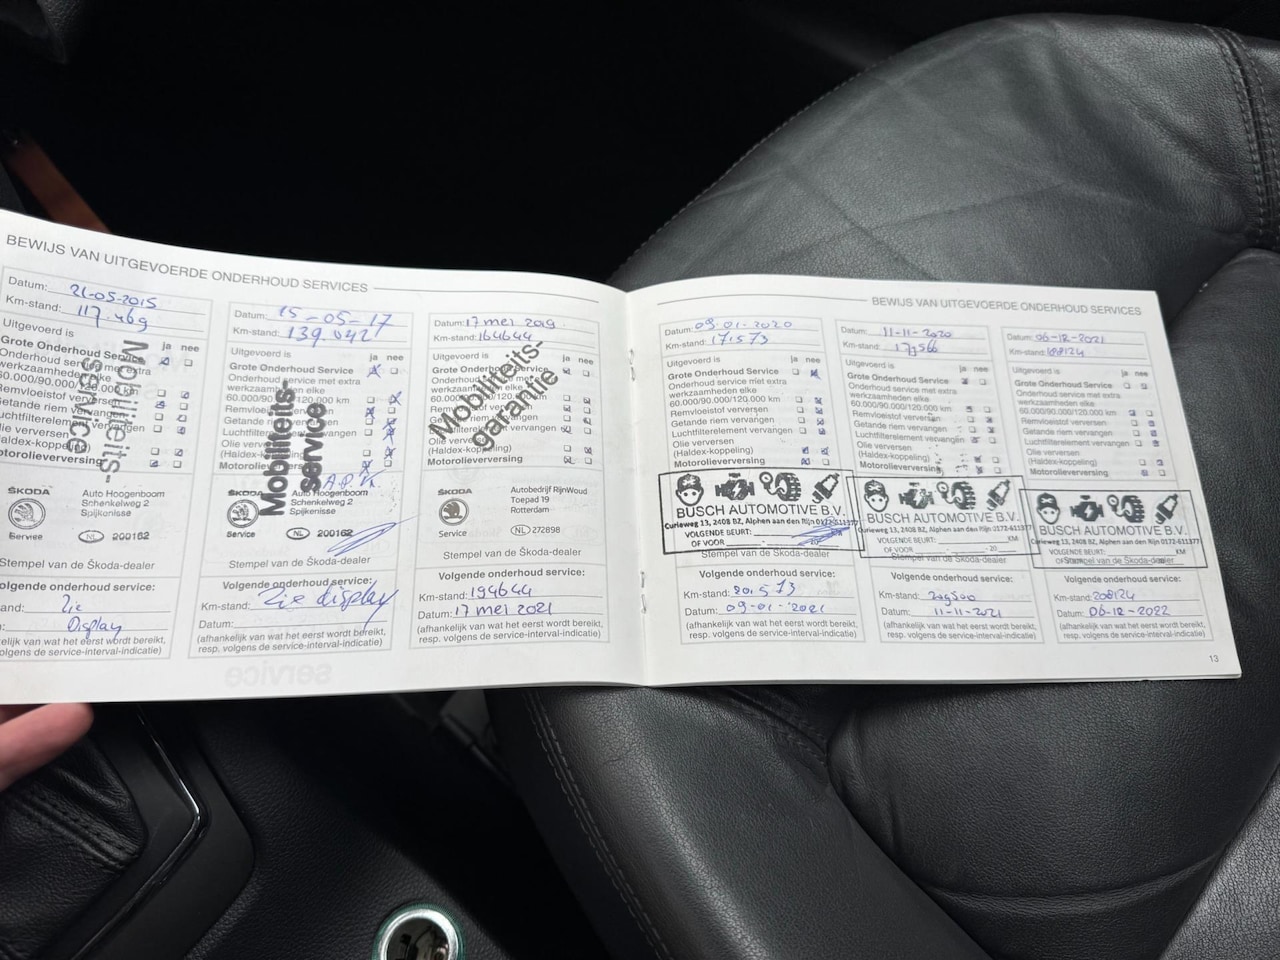 BEWIJS VAN UITGEVOERDE ONDERHOUD SERVICES
Datum: 21-05-2015
Km-stand: 117.469
Uitgevoerd is
ja nee
Grote Onderhoud Service
Onderhoud service met extra
werkzaamheden elke
60.000/90.000/120.000 km
Remvloeistof verversen
Getande riem vervangen
Luchtfilterelement vervangen
Olie verversen
(Haldex-koppeling)
Motorolieverversing
Mobiliteits-
service
ŠKODA
Service
Auto Hoogenboom
Schenkelweg 2
Spijkenisse
NL 200162
Stempel van de Škoda-dealer
Volgende onderhoud service:
Zie
Display
(afhankelijk van wat het eerst wordt bereikt,
resp. volgens de service-interval-indicatie)
Datum: 15-05-17
Km-stand: 139.042
Uitgevoerd is
ja nee
Grote Onderhoud Service
Onderhoud service met extra
werkzaamheden elke
60.000/90.000/120.000 km
Remvloeistof verversen
Getande riem vervangen
Luchtfilterelement vervangen
Olie verversen
(Haldex-koppeling)
Motorolieverversing
Mobiliteits-
service
A.P.K
ŠKODA
Service
Auto Hoogenboom
Schenkelweg 2
Spijkenisse
NL 200162
Stempel van de Škoda-dealer
Volgende onderhoud service:
Km-stand: Zie display
Datum:
(afhankelijk van wat het eerst wordt bereikt,
resp. volgens de service-interval-indicatie)
Datum: 17 mei 2019
Km-stand: 164644
Uitgevoerd is
ja nee
Grote Onderhoud Service
Onderhoud service met extra
werkzaamheden elke
60.000/90.000/120.000 km
Remvloeistof verversen
Getande riem vervangen
Luchtfilterelement vervangen
Olie verversen
(Haldex-koppeling)
Motorolieverversing
Mobiliteits-
Garantie
ŠKODA
Service
Autobedrijf RijnWoud
Toepad 19
Rotterdam
NL 272898
Stempel van de Škoda-dealer
Volgende onderhoud service:
Km-stand: 194644
Datum: 17 mei 2021
(afhankelijk van wat het eerst wordt bereikt,
resp. volgens de service-interval-indicatie)
BEWIJS VAN UITGEVOERDE ONDERHOUD SERVICES
Datum: 09-01-2020
Km-stand: 171.573
Uitgevoerd is
ja nee
Grote Onderhoud Service
Onderhoud service met extra
werkzaamheden elke
60.000/90.000/120.000 km
Remvloeistof verversen
Getande riem vervangen
Luchtfilterelement vervangen
Olie verversen
(Haldex-koppeling)
Motorolieverversing
BUSCH AUTOMOTIVE B.V.
Curieweg 13, 2408 BZ, Alphen aan den Rijn 0172-611377
VOLGENDE BEURT:
OF VOOR
Stempel van de Škoda-dealer
Volgende onderhoud service:
Km-stand: 201.573
Datum: 09-01-2021
(afhankelijk van wat het eerst wordt bereikt,
resp. volgens de service-interval-indicatie)
Datum: 11-11-2020
Km-stand:
Uitgevoerd is
ja nee
Grote Onderhoud Service
Onderhoud service met extra
werkzaamheden elke
60.000/90.000/120.000 km
Remvloeistof verversen
Getande riem vervangen
Luchtfilterelement vervangen
Olie verversen
(Haldex-koppeling)
Motorolieverversing
BUSCH AUTOMOTIVE B.V.
Curieweg 13, 2408 BZ, Alphen aan den Rijn 0172-611377
VOLGENDE BEURT: KM
OF VOOR - - 20
Stempel van de Škoda-dealer
Volgende onderhoud service:
Km-stand:
Datum: 11-11-2021
(afhankelijk van wat het eerst wordt bereikt,
resp. volgens de service-interval-indicatie)
Datum: 06-12-2021
Km-stand: 188124
Uitgevoerd is
ja nee
Grote Onderhoud Service
Onderhoud service met extra
werkzaamheden elke
60.000/90.000/120.000 km
Remvloeistof verversen
Getande riem vervangen
Luchtfilterelement vervangen
Olie verversen
(Haldex-koppeling)
Motorolieverversing
BUSCH AUTOMOTIVE B.V.
Curieweg 13, 2408 BZ, Alphen aan den Rijn 0172-611377
VOLGENDE BEURT: KM
Stempel van de Škoda-dealer
Volgende onderhoud service:
Km-stand: 208124
Datum: 06-12-2022
(afhankelijk van wat het eerst wordt bereikt,
resp. volgens de service-interval-indicatie)
13